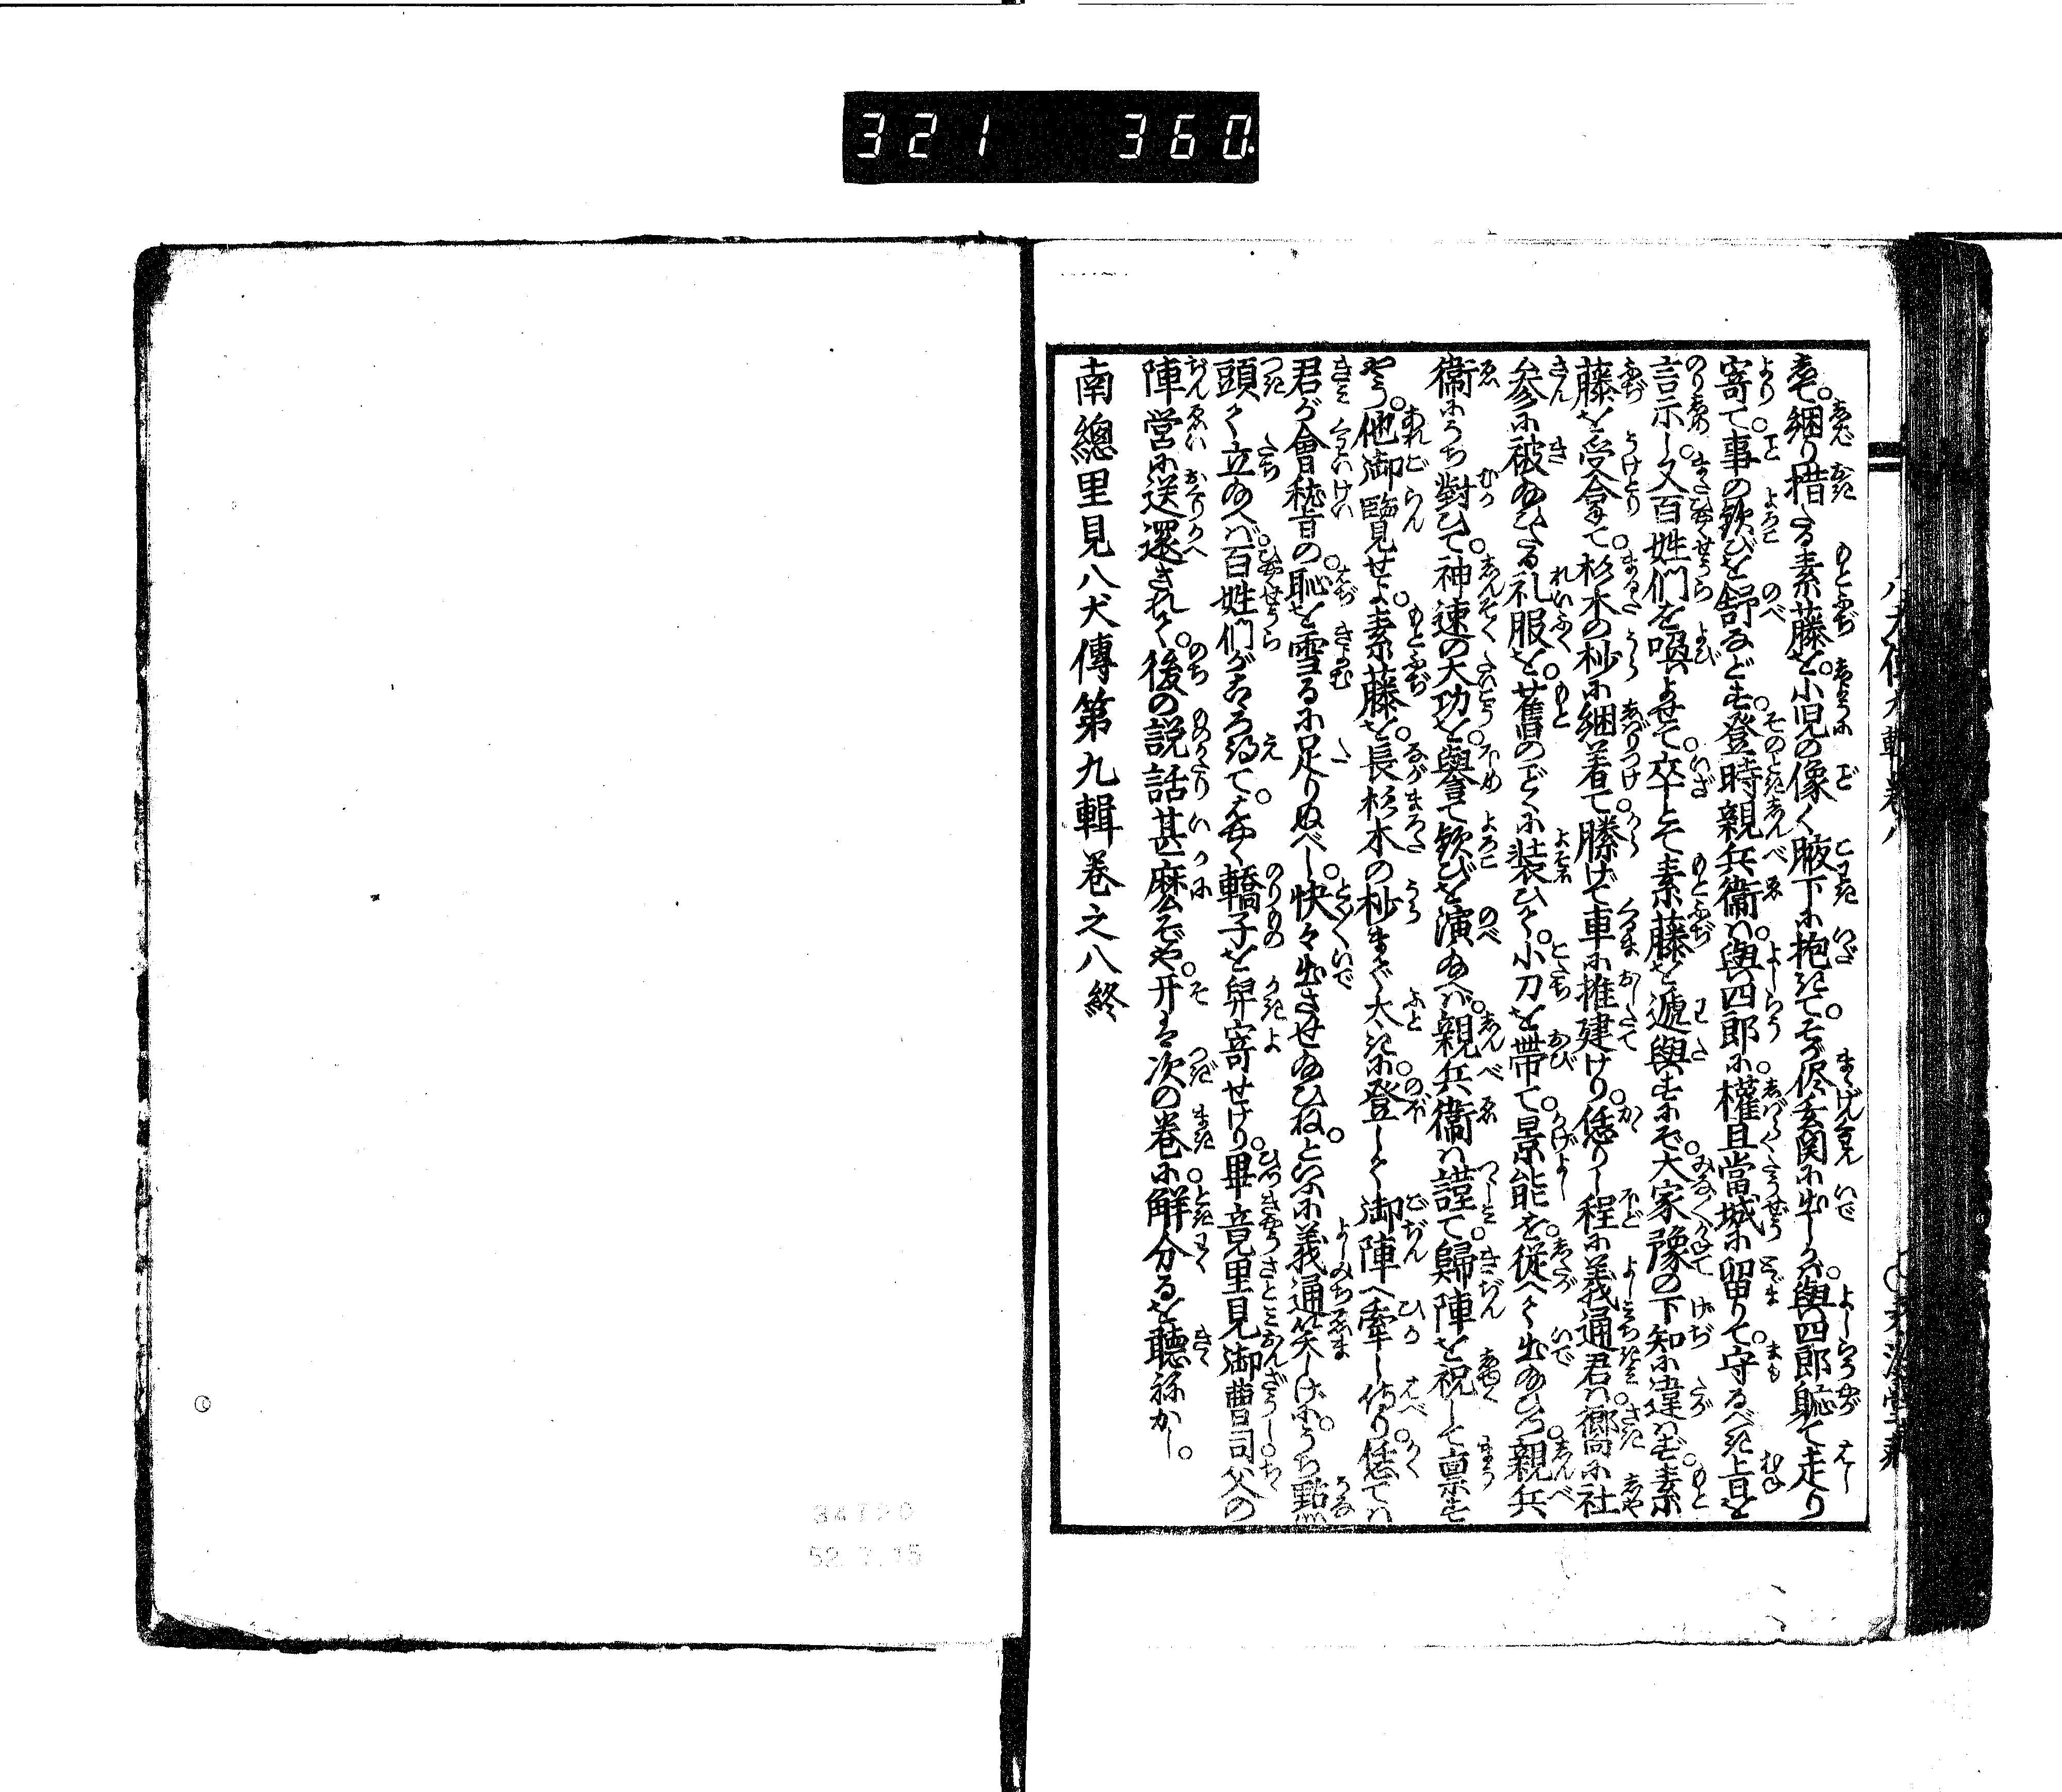 321 360
志て。綑り措たる素藤を。小児の像く腋下に抱きて。そが侭玄関に出しかば。與四郎躯て走り
寄て。事の歓びを舒などす。登時親兵衞は。與四郎に權且當城に留りて。守るべき旨を
言示し。又百姓們を喚よせて。卒とて素藤を遞與すにぞ。大家豫の下知に違はず。素
藤を受合て。杉木の杪に綑着て。縢げて車に推建けり。恁りし程に義通君は。嚮に社
参に被給ひたる礼服を。舊のごとくに装ひて。小刀を帯て。景能を。従へて出給ひつ。親兵
衞にうち對ひて。神速の大功を。譽て歓びを演給へば。親兵衞は謹て。歸陣を祝して禀す
やう。他御臨見せよ。素藤を。長杉木の杪まで太きに。登しく御陣へ牽し侍り。恁ては
君が會稽の。恥を雪るに足りぬべし。快々出させ給ひね。といふに義通笑しげに。うち點
頭く立給へば。百姓們がこゝろ得て。はやく轎子を舁寄せけり。畢竟里見御曹司。父の
陣営に送還されて。後の説話甚麽ぞや。开は次の巻に。解分るを聴ねかし。
南總里見八犬傳第九輯巻之八終
34720
52.7.15